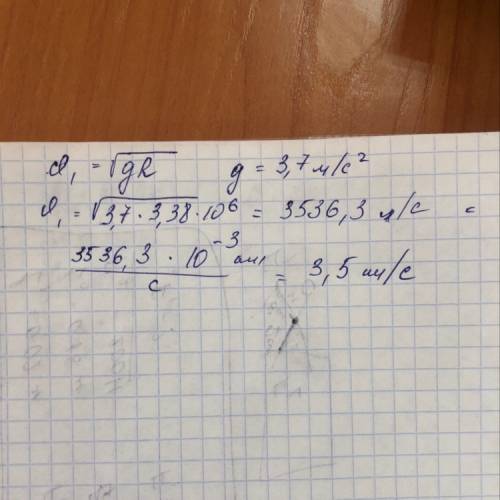 υ₁ = √gR g = 3,7 м/с²
υ₁ = √3,7 · 3,38 · 10⁶ = 3536,3 м/с =
3536,3 · 10⁻³ км / с = 3,5 км/с